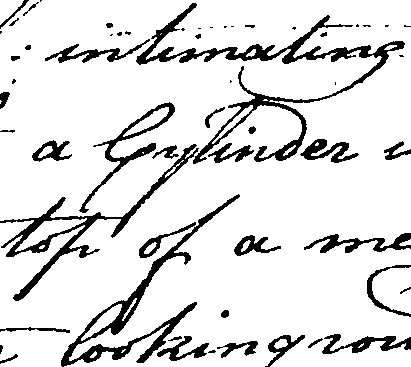 : intimating
a Cylinder
top of a me
looking rou